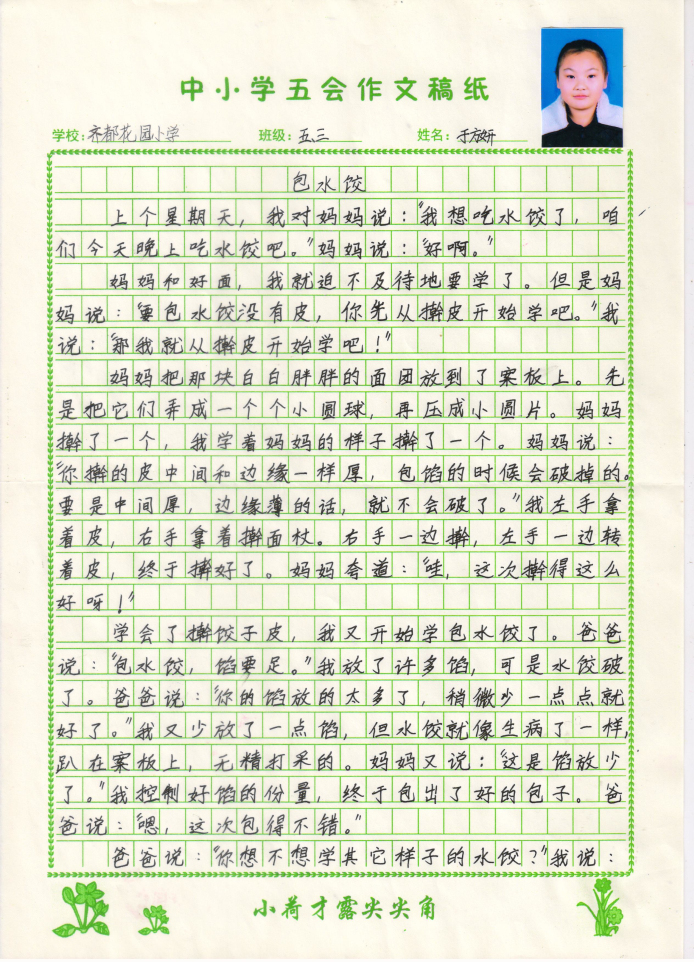 中小学五会作文稿纸
学校：齐都花园小学 班级：五.三 姓名：于方妍
包水饺
上个星期天，我对妈妈说：“我想吃水饺了，咱
们今天晚上吃水饺吧。”妈妈说：“好啊。”
妈妈和好面，我就迫不及待地要学了。但是妈
妈说：“要包水饺没有皮，你先从擀皮开始学吧。”我
说：“那我就从擀皮开始学吧！”
妈妈把那块白白胖胖的面团放到了案板上。先
是把它们弄成一个个小圆球，再压成小圆片。妈妈
擀了一个，我学着妈妈的样子擀了一个。妈妈说：
“你擀的皮中间和边缘一样厚，包馅的时候会破掉的。
要是中间厚，边缘薄的话，就不会破了。”我左手拿
着皮，右手拿着擀面杖。右手一边擀，左手一边转
着皮，终于擀好了。妈妈夸道：“哇，这次擀得这么
好呀！”
学会了擀饺子皮，我又开始学包水饺了。爸爸
说：“包水饺，馅要足。”我放了许多馅，可是水饺破
了。爸爸说：“你的馅放的太多了，稍微少一点点就
好了。”我又少放了一点馅，但水饺就像生病了一样，
趴在案板上，无精打采的。妈妈又说：“这是馅放少
了。”我控制好馅的份量，终于包出了好的包子。爸
爸说：“嗯，这次包得不错。”
爸爸说：“你想不想学其它样子的水饺？”我说：
小荷才露尖尖角